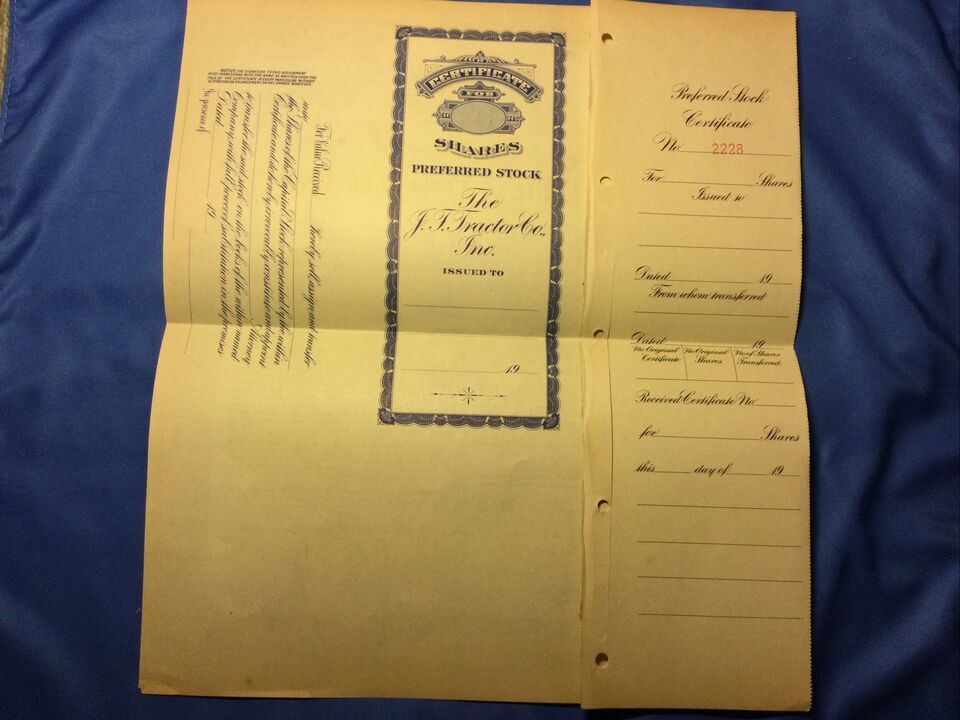 NOTICE. THE SIGNATURE TO THIS ASSIGNMENT
MUST CORRESPOND WITH THE NAME AS WRITTEN UPON THE
FACE OF THE CERTIFICATE IN EVERY PARTICULAR WITHOUT
ALTERATION OR ENLARGEMENT OR ANY CHANGE WHATEVER.
For Value Received, hereby sell, assign and transfer
unto
Shares
of the Capital Stock represented by the within
Certificate and do hereby irrevocably constitute and appoint
Attorney
to transfer the said stock on the books of the within named
Company with full power of substitution in the premises.
Dated 19
In presence of
CERTIFICATE
FOR
SHARES
PREFERRED STOCK
The
J. T. Tractor Co.,
Inc.
ISSUED TO
19
Preferred Stock
Certificate
No. 2228
For Shares
Issued to
Dated 19
From whom transferred
Dated 19
No. Original Certificate No. Original Shares. No. of Shares Transferred.
Received Certificate No.
for Shares
this day of 19